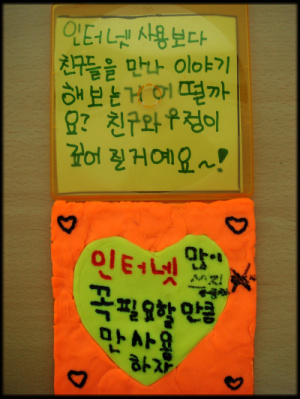 인터넷 사용보다
친구들을 만나 이야기
해보는거 어떨까
요? 친구와 우정이
깊어 질거예요~!
인터넷 많이
꼭 필요할 만큼
만 사용
하자